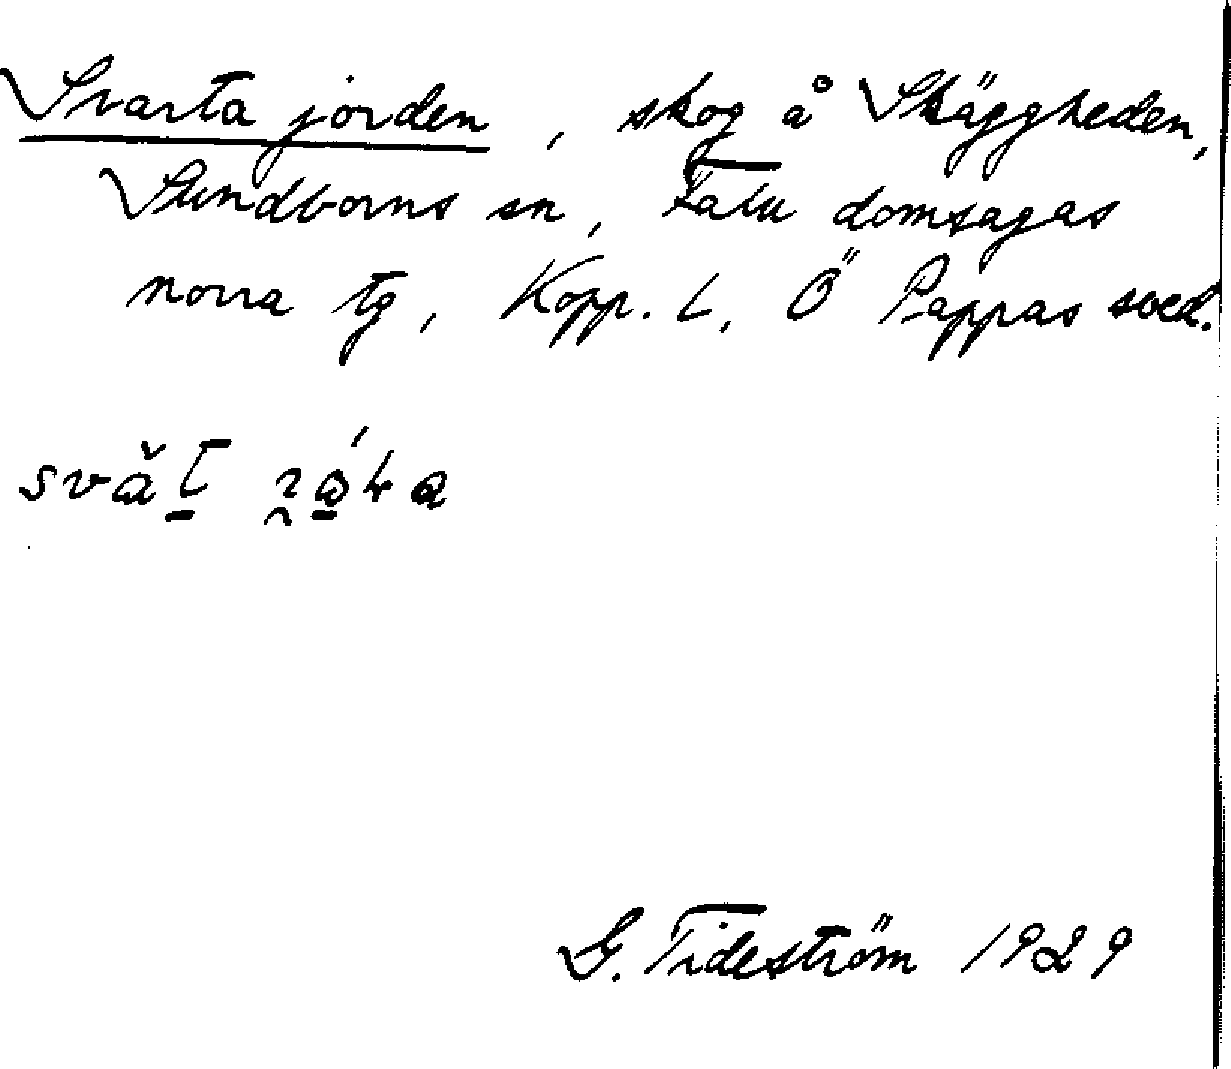 Svarta jorden, skog å Skäggheden,
Sundborns sn, Falu domsagas
norra tg, Kopp. L, Ö Pappas sved.
G. Tideström 1929